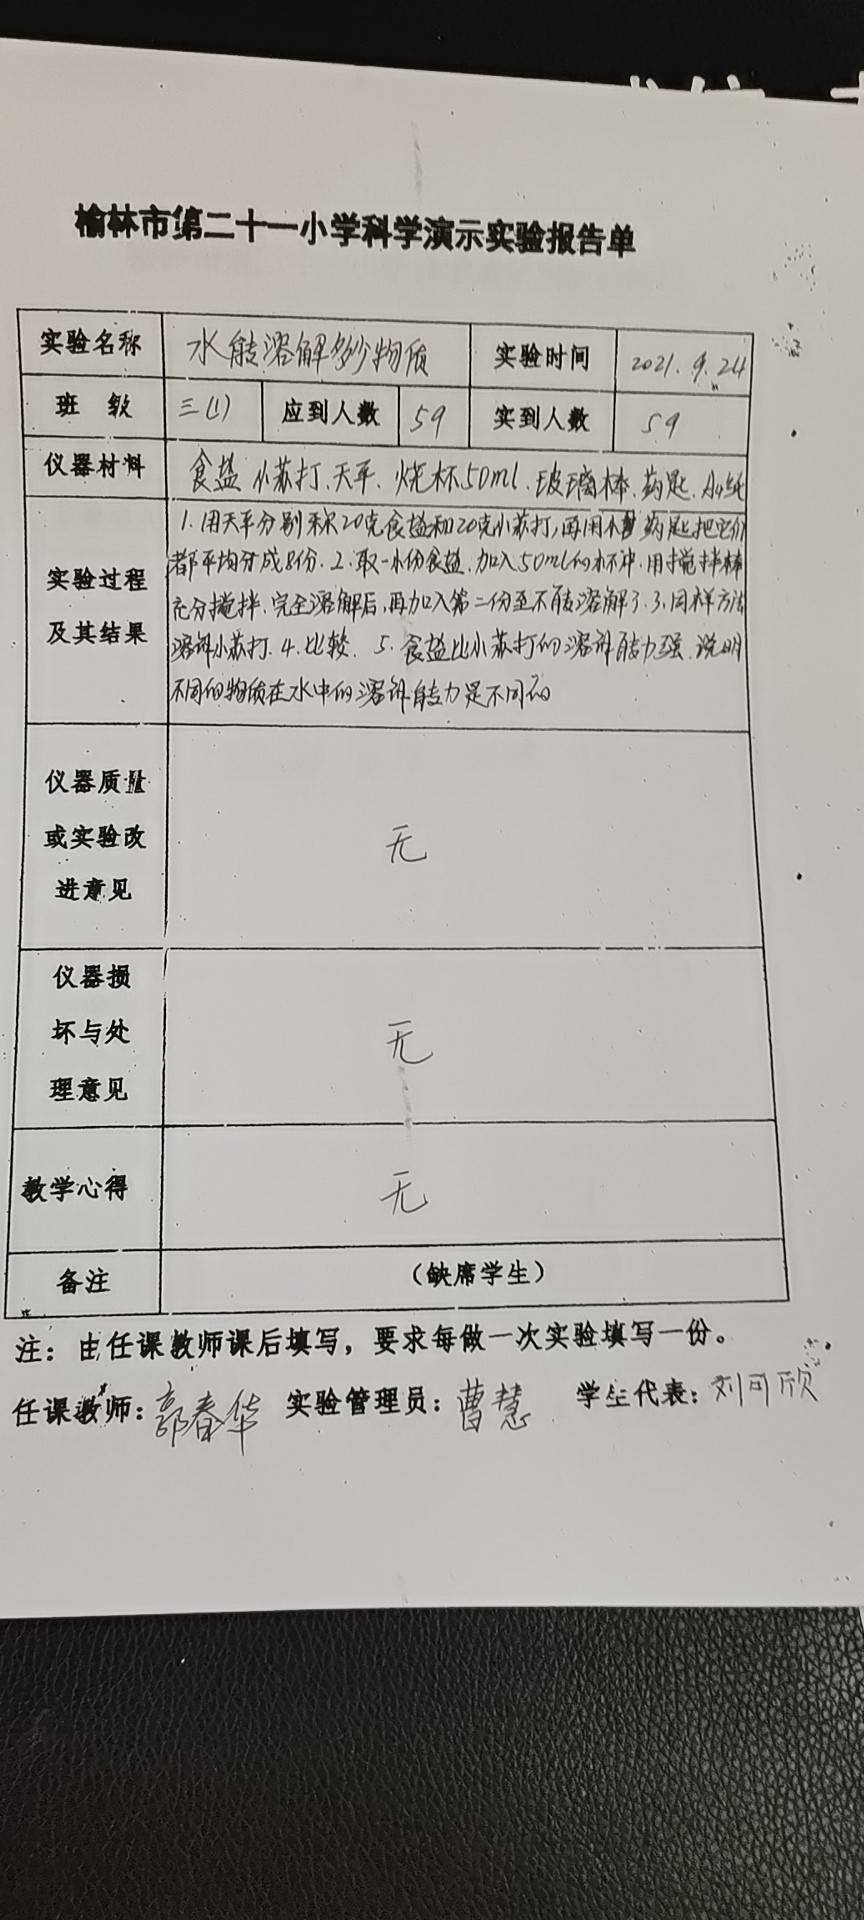 榆林市第二十一小学科学演示实验报告单
实验名称 水能溶解多少物质 实验时间 2021.9.24
班 级 三(1) 应到人数 59 实到人数 59
仪器材料 食盐 小苏打、天平、烧杯50ml、玻璃棒、药匙、A4纸
实验过程
及其结果
1.用天平分别称20克食盐和20克小苏打,再用小药匙把它们
都平均分成8份.2.取一小份食盐,加入50ml的水杯中,用搅拌棒
充分搅拌,完全溶解后,再加入第二份至不能溶解了.3.同样方法
溶解小苏打.4.比较. 5.食盐比小苏打的溶解能力强,说明
不同的物质在水中的溶解能力是不同的
仪器质量
或实验改
进意见
无
仪器损
坏与处
理意见
无
教学心得 无
备注 （缺席学生）
注：由任课教师课后填写，要求每做一次实验填写一份。
任课教师：郭春华 实验管理员：曹慧 学生代表：刘可欣